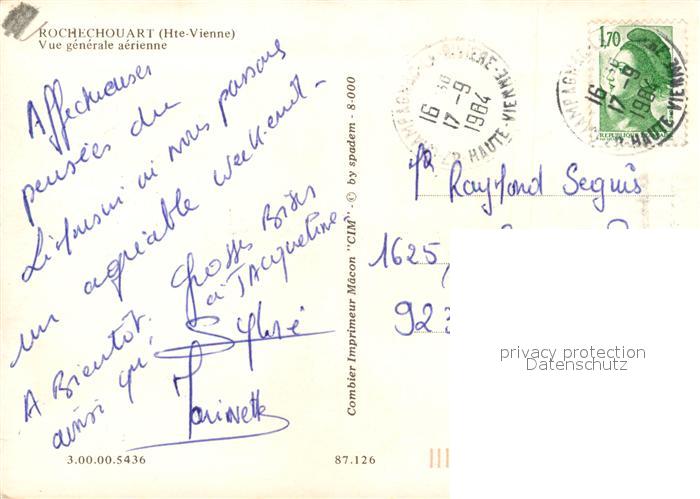 ROCHECHOUART (Hte-Vienne)
Vue générale aérienne
Affectueuses
pensées du
Limousin où nous passons
un agréable week-end.
A Bientôt. Grosses Bises
ainsi qu' à JAcqueline
Sylvie
Combier Imprimeur Mâcon "CIM" - © by spadem - 8-000
3.00.00.5436
87.126
16 30
17-9
1984
HAUTE-VIENNE
1,70
16 30
17-9
1984
HAUTE-VIENNE
Raymond Seguis
1625,
923
privacy protection
Datenschutz